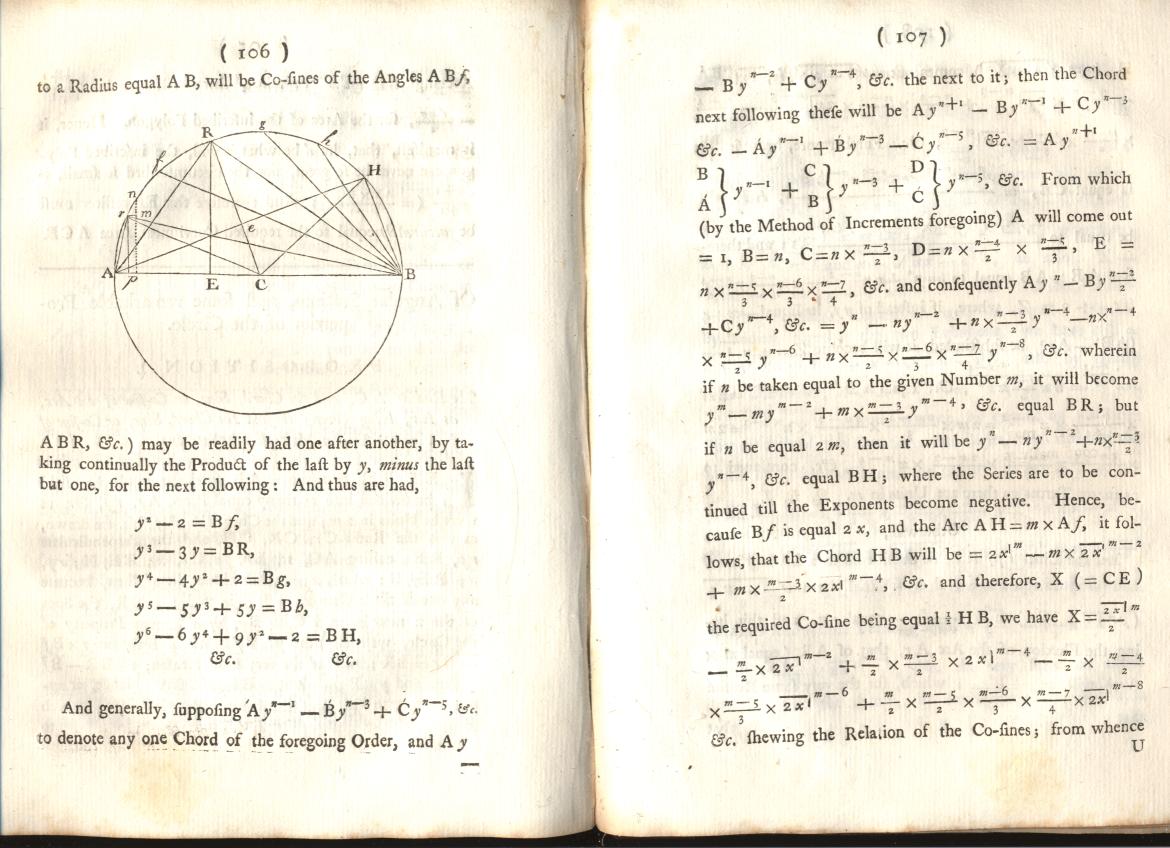 ( 106 )
to a Radius equal A B, will be Co-ſines of the Angles A B f,
R g h
f H
n
r m
e
A p E C B
A B R, &c.) may be readily had one after another, by ta-
king continually the Product of the laſt by y, minus the laſt
but one, for the next following: And thus are had,
y² — 2 = B f,
y³ — 3 y = BR,
y⁴ — 4y² + 2 = B g,
y⁵ — 5 y³ + 5y = B h,
y⁶ — 6 y⁴ + 9 y² — 2 = B H,
&c. &c.
And generally, ſuppoſing Á yⁿ⁻¹ — B́ yⁿ⁻³ + Ć yⁿ⁻⁵, &c.
to denote any one Chord of the foregoing Order, and A y
—
( 107 )
— B yⁿ⁻² + C yⁿ⁻⁴, &c. the next to it; then the Chord
next following theſe will be A yⁿ⁺¹ — B yⁿ⁻¹ + C yⁿ⁻³
&c. — Á yⁿ⁻¹ + B́ yⁿ⁻³ — Ć yⁿ⁻⁵, &c. = A yⁿ⁺¹
B C D
} yⁿ⁻¹ + } yⁿ⁻³ + } yⁿ⁻⁵, &c. From which
Á B́ Ć
(by the Method of Increments foregoing) A will come out
= 1, B = n, C = n × (n—3)/2, D = n × (n—4)/2 × (n—5)/3, E =
n × (n—5)/3 × (n—6)/3 × (n—7)/4, &c. and conſequently A yⁿ — B yⁿ⁻²
+ C yⁿ⁻⁴, &c. = yⁿ — nyⁿ⁻² + n × (n—3)/2 yⁿ⁻⁴ — nxⁿ⁻⁴
× (n—5)/2 yⁿ⁻⁶ + n × (n—5)/2 × (n—6)/3 × (n—7)/4 yⁿ⁻⁸, &c. wherein
if n be taken equal to the given Number m, it will become
yᵐ — myᵐ⁻² + m × (m—3)/2 yᵐ⁻⁴, &c. equal BR; but
if n be equal 2 m, then it will be yⁿ — nyⁿ⁻² + n × (n—3)/2
yⁿ⁻⁴, &c. equal BH; where the Series are to be con-
tinued till the Exponents become negative. Hence, be-
cauſe B f is equal 2 x, and the Arc A H = m × A f, it fol-
lows, that the Chord H B will be = 2x|ᵐ — m × 2x|ᵐ⁻²
+ m × (m—3)/2 × 2x|ᵐ⁻⁴, &c. and therefore, X (= C E)
the required Co-ſine being equal ½ H B, we have X = 2x|ᵐ/2
— m/2 × 2x|ᵐ⁻² + m/2 × (m—3)/2 × 2x|ᵐ⁻⁴ — m/2 × (m—4)/2
× (m—5)/3 × 2x|ᵐ⁻⁶ + m/2 × (m—5)/2 × (m—6)/3 × (m—7)/4 × 2x|ᵐ⁻⁸
&c. ſhewing the Relation of the Co-ſines; from whence
U